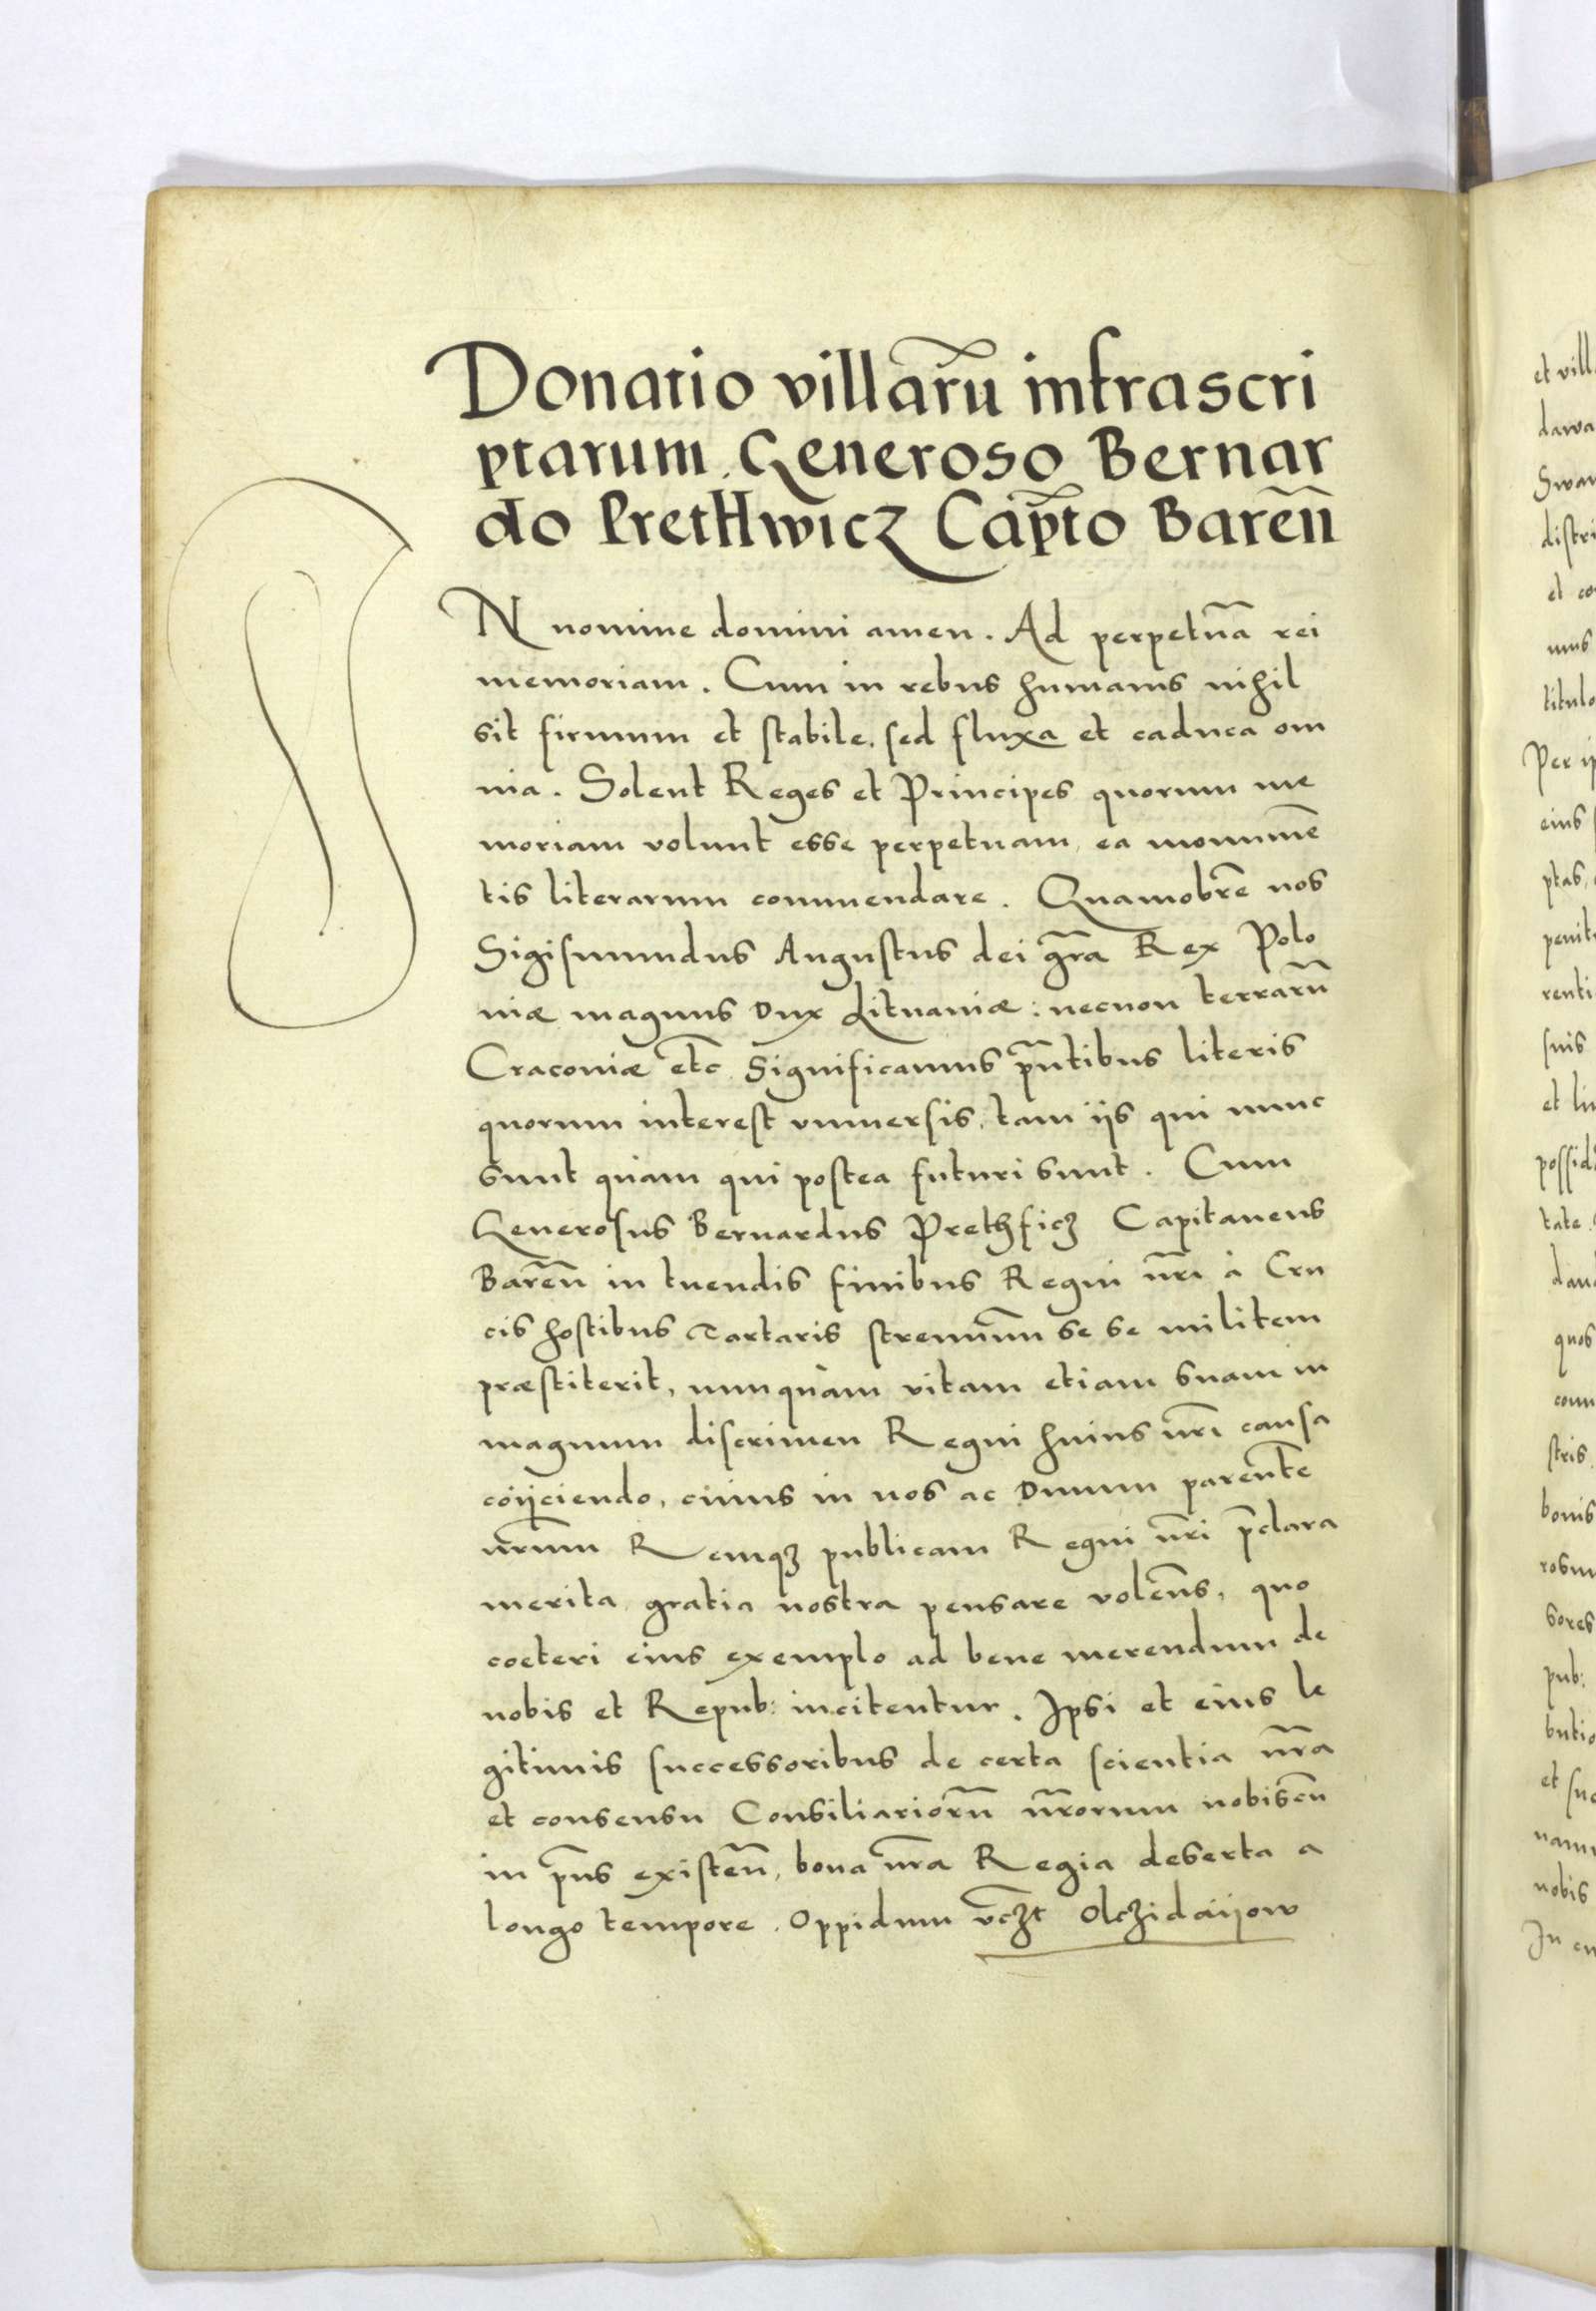 Donatio villarū infrascri
ptarum Generoso Bernar
do PretHwicz Cap̃to Bareñ
IN nomine domini amen. Ad perpetuā rei
memoriam. Cum in rebus humanis nihil
sit firmum et stabile, sed fluxa et caduca om
nia. Solent Reges et Principes quorum me
moriam volunt esse perpetuam, ea monumē
tis literarum commendare. Quamobrē nos
Sigismundus Augustus dei gr̃a Rex Polo
niæ magnus Dux Lituaniæ: necnon terrarū
Cracoviæ etc̃ Significamus pñtibus literis
quorum interest vniuersis, tam ijs qui nunc
sunt quàm qui postea futuri sunt. Cum
Generosus Bernardus Prethficz Capitaneus
Bareñ in tuendis finibus Regni nr̃i à Cru
cis hostibus Tartaris strenuum se se militem
præstiterit, nunquàm vitam etiam suam in
magnum discrimen Regni huius nr̃i causa
coijciendo, cuius in nos ac Diuum parentē
nr̃um Remqꝫ publicam Regni nr̃i p̃clara
merita gratia nostra pensare voleñs, quo
coeteri eius exemplo ad bene merendum de
nobis et Repub: incitentur. Ipsi et eius le
gitimis successoribus de certa scientia nr̃a
et consensu Consiliariorū nr̃orum nobiscū
in p̃ns existeñ, bona nr̃a Regia deserta a
longo tempore. Oppidum vc̃ꝫt Olcꝫidaijow
et vill
dawa
Swan
distri
et co
titulo
Per ip
eius
ptas,
penit
renti
suis
et li
possid
tate
quos
stris
bonis
sores
pub:
butio
et suc
nobis